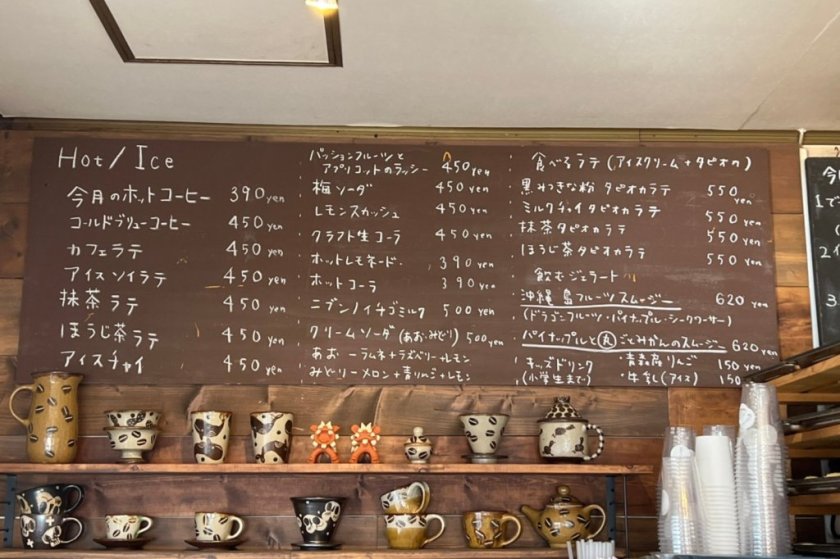 Hot/Ice
今月のホットコーヒー 390yen
コールドブリューコーヒー 450yen
カフェラテ 450yen
アイスソイラテ 450yen
抹茶ラテ 450yen
ほうじ茶ラテ 450yen
アイスチャイ 450yen
パッションフルーツと
アプリコットのラッシー 450yen
梅ソーダ 450yen
レモンスカッシュ 450yen
クラフト生コーラ 450yen
ホットレモネード 390yen
ホットコーラ 390yen
ニブンノイチゴミルク 500yen
クリームソーダ(あお・みどり) 500yen
あお ーラムネ+ラズベリー+レモン
みどりーメロン+青りんご+レモン
食べるラテ(アイスクリーム+タピオカ)
黒みつきな粉 タピオカラテ 550yen
ミルクチャイタピオカラテ 550yen
抹茶タピオカラテ 550yen
ほうじ茶タピオカラテ 550yen
飲むジェラート
沖縄 島フルーツスムージー 620yen
(ドラゴンフルーツ・パイナップル・シークワーサー)
パイナップルと丸ごとみかんのスムージー 620yen
キッズドリンク
(小学生まで)
・青森産りんご 150yen
・牛乳(アイス) 150